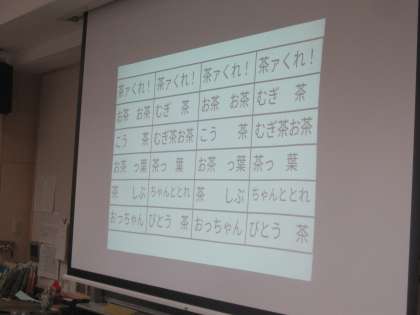 茶ァくれ! 茶ァくれ! 茶ァくれ! 茶ァくれ!
お茶 お茶 むぎ 茶 お茶 お茶 むぎ 茶
こう 茶 むぎ茶お茶 こう 茶 むぎ茶お茶
お茶 っ葉 茶っ 葉 お茶 っ葉 茶っ 葉
茶 しぶ ちゃんととれ 茶 しぶ ちゃんととれ
おっちゃん びとう 茶 おっちゃん びとう 茶